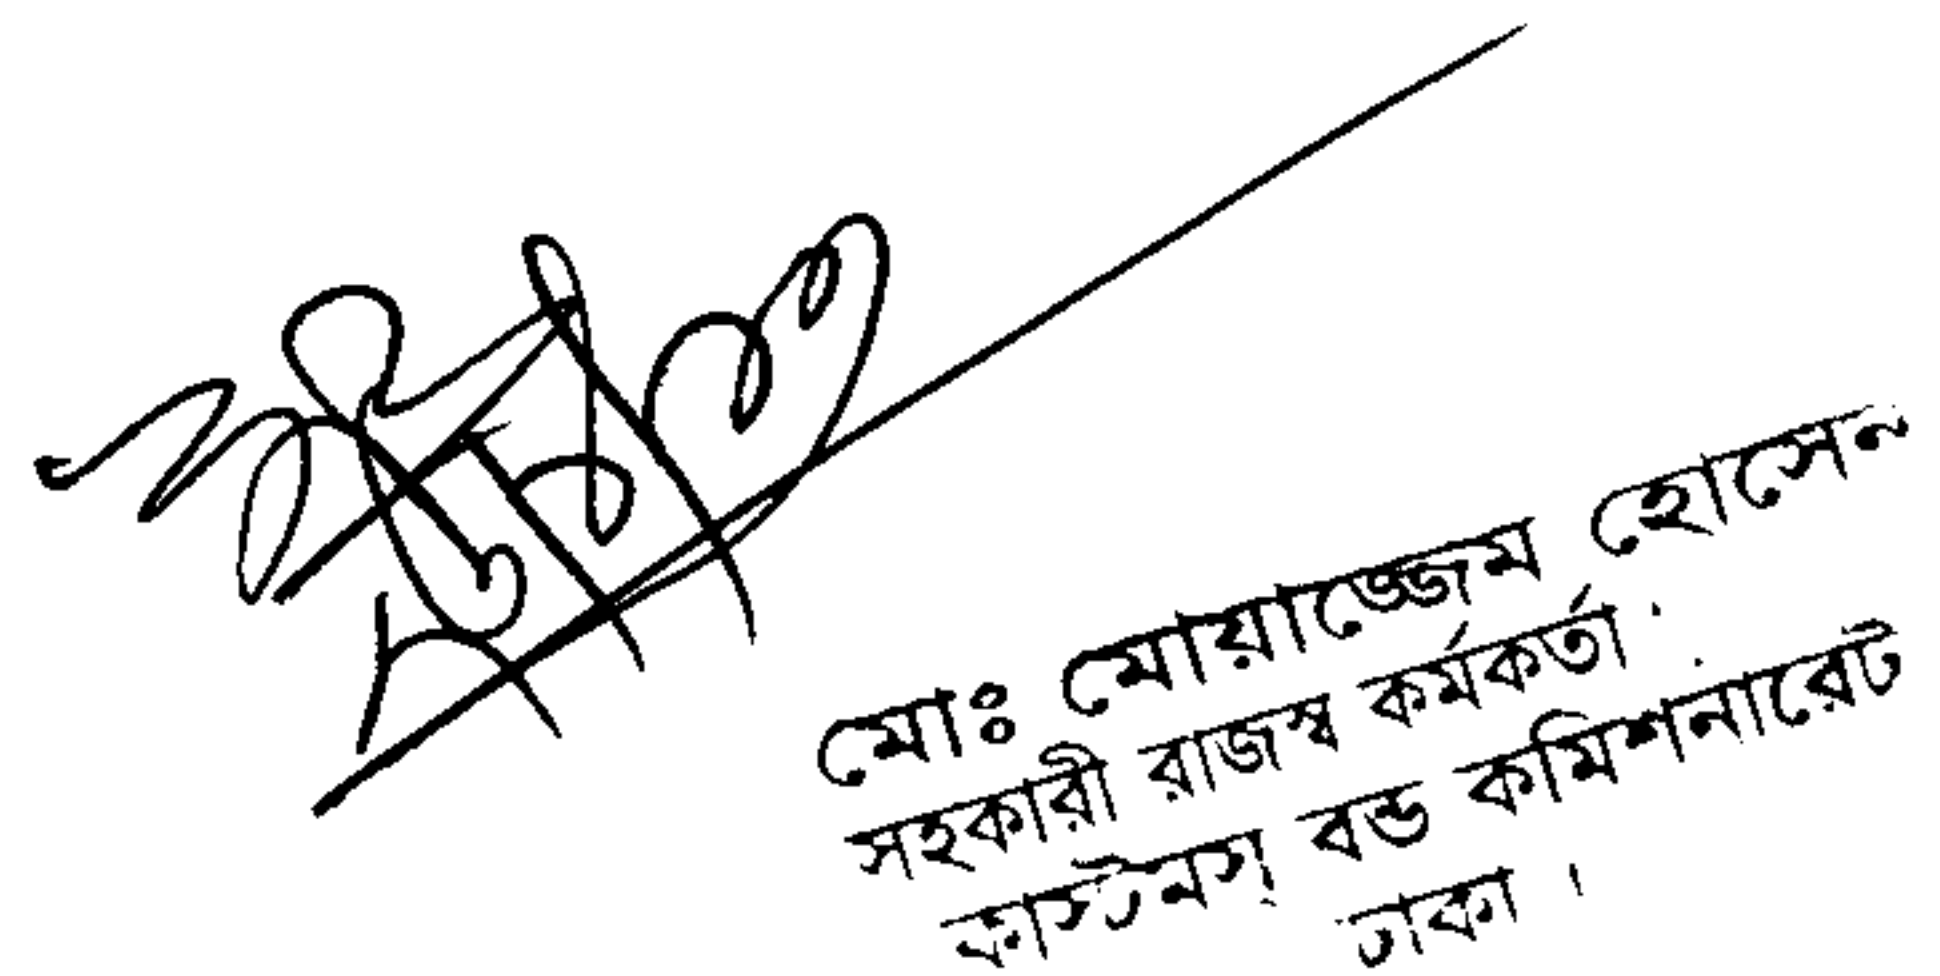 মোঃ মোয়াজ্জেম হোসেন
সহকারী রাজস্ব কর্মকর্তা
কাস্টমস্ বন্ড কমিশনারেট
ঢাকা।